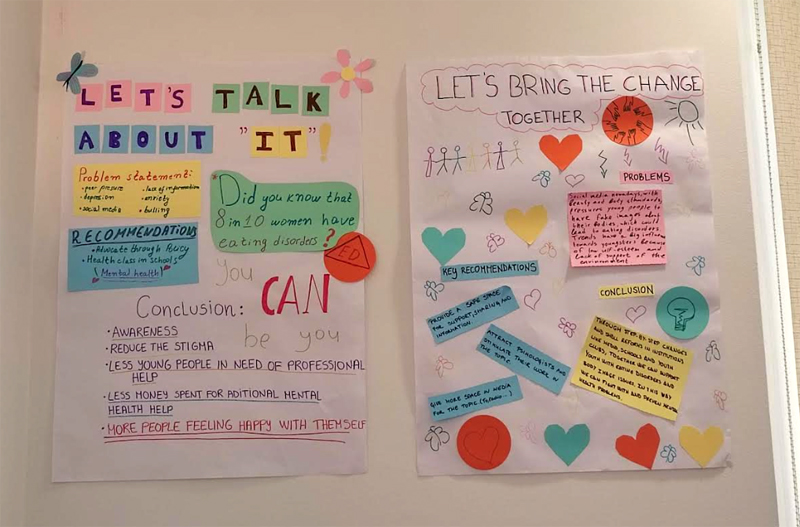 LET'S TALK
ABOUT "IT"!
Problem statement:
• peer pressure
• depression
• social media
• lack of information
• anxiety
• bulling
Did you know that
8 in 10 women have
eating disorders?
ED
RECOMMENDATIONS
• Advocate through Policy
• Health class in schools
Mental health!
you
CAN
be you
Conclusion:
• AWARENESS
• REDUCE THE STIGMA
• LESS YOUNG PEOPLE IN NEED OF PROFESSIONAL
HELP
• LESS MONEY SPENT FOR ADITIONAL MENTAL
HEALTH HELP
• MORE PEOPLE FEELING HAPPY WITH THEMSELF
LET'S BRING THE CHANGE
TOGETHER
PROBLEMS
Social media nowadays, with
beauty and body standards
pressures young people to
have fake images about
their bodies, which could
lead to eating disorders.
Trends have a big influence
towards youngsters because
of low self-esteem and
lack of support of the
environment
KEY RECOMMENDATIONS
PROVIDE A SAFE SPACE
FOR SUPPORT, SHARING AND
INFORMATION
ATTRACT PSYCHOLOGISTS AND
STIMULATE THEIR WORK IN
THE TOPIC
GIVE MORE SPACE IN MEDIA
FOR THE TOPIC
CONCLUSION
THROUGH STEP BY STEP CHANGES
AND SMALL REFORMS IN INSTITUTIONS
LIKE MEDIA, SCHOOLS AND YOUTH
CLUBS, TOGETHER WE CAN SUPPORT
YOUTH WITH EATING DISORDERS AND
BODY IMAGE ISSUES. IN THIS WAY
WE CAN FIGHT WITH AND PREVENT MENTAL
HEALTH PROBLEMS